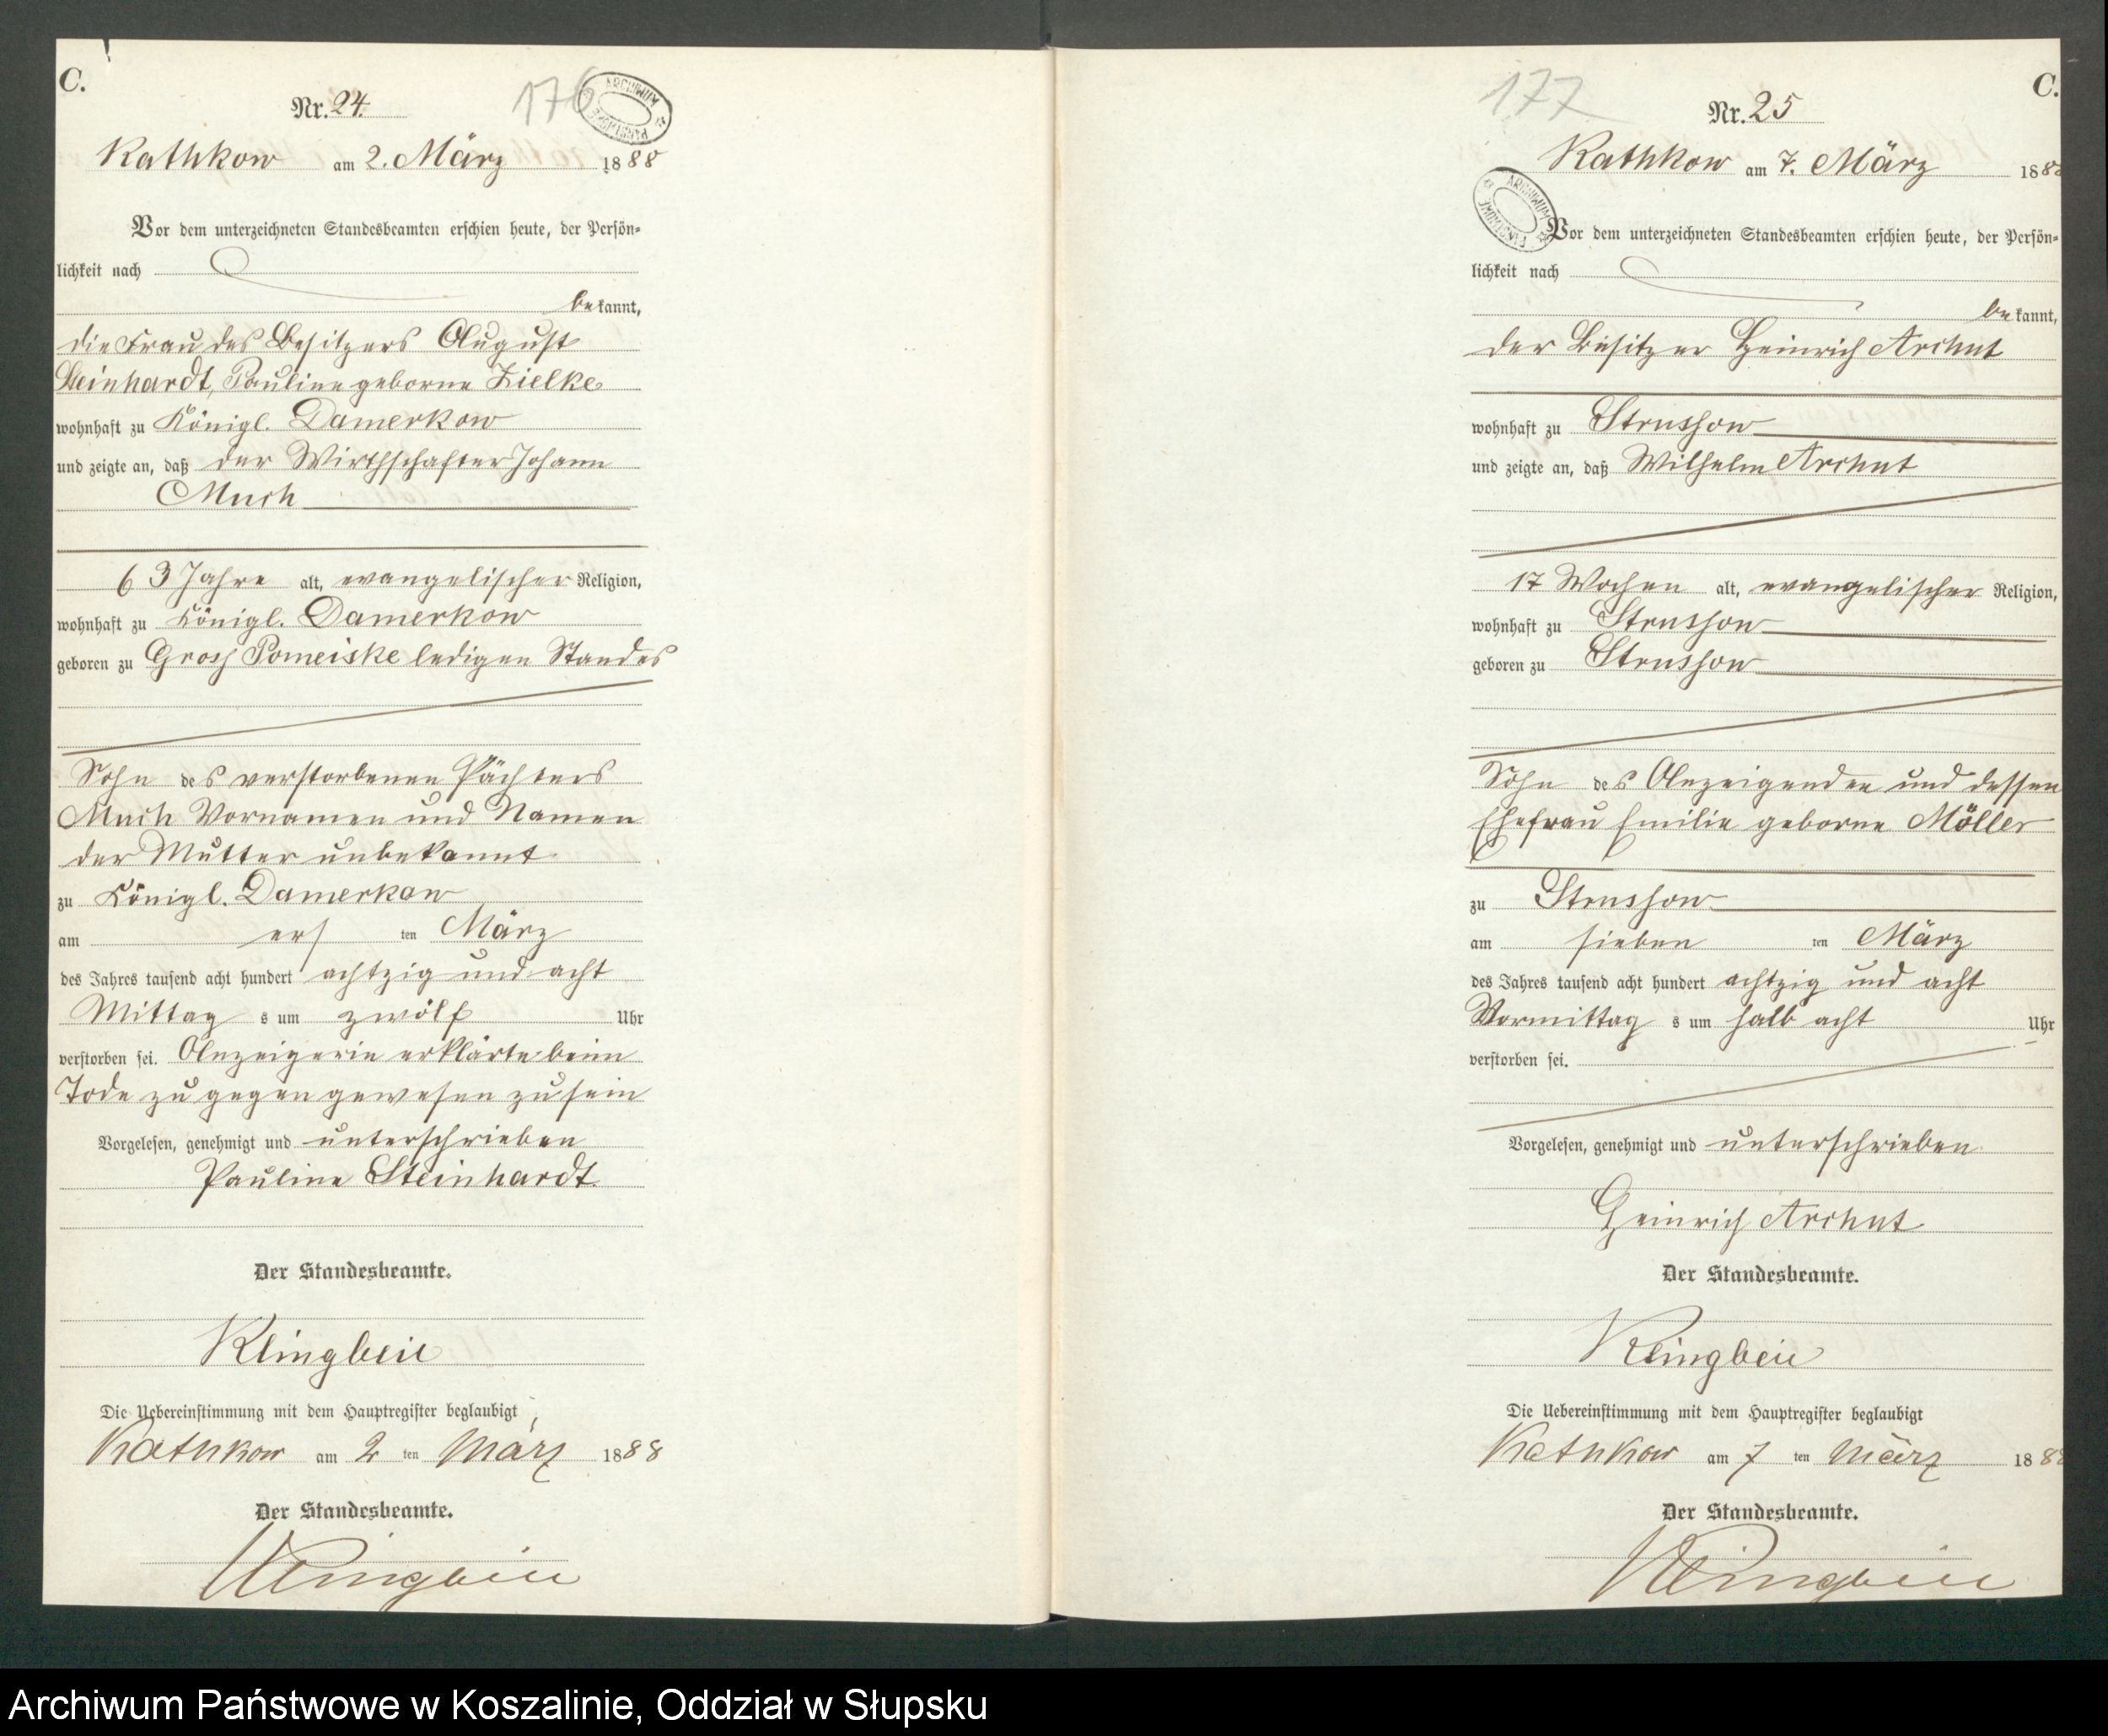 C.
Nr. 24.
176
ARCHIWUM PAŃSTWOWE
Kathkow am 2. März 1888
Vor dem unterzeichneten Standesbeamten erschien heute, der Persön-
lichkeit nach
bekannt,
die Frau des Besitzers August
Steinhardt, Pauline geborne Zielke
wohnhaft zu Königl. Damerkow
und zeigte an, daß der Wirthschafter Johann
Much
63 Jahre alt, evangelischer Religion,
wohnhaft zu Königl. Damerkow
geboren zu Gross Pomeiske ledigen Standes
Sohn des verstorbenen Pächters
Much Vornamen und Namen
der Mutter unbekannt
zu Königl. Damerkow
am ersten März
des Jahres tausend acht hundert achtzig und acht
Mittags um zwölf Uhr
verstorben sei. Anzeigerin erklärte beim
Tode zu gegen gewesen zu sein
Vorgelesen, genehmigt und unterschrieben
Pauline Steinhardt
Der Standesbeamte.
Klingbeil
Die Uebereinstimmung mit dem Hauptregister beglaubigt
Kathkow am 2 ten März 1888
Der Standesbeamte.
Klingbeil
177
C.
Nr. 25
Kathkow am 7. März 1888
ARCHIWUM PAŃSTWOWE
Vor dem unterzeichneten Standesbeamten erschien heute, der Persön-
lichkeit nach
bekannt,
der Besitzer Heinrich Archut
wohnhaft zu Strussow
und zeigte an, daß Wilhelm Archut
17 Wochen alt, evangelischer Religion,
wohnhaft zu Strussow
geboren zu Strussow
Sohn des Anzeigenden und dessen
Ehefrau Emilie geborne Möller
zu Strussow
am siebenten März
des Jahres tausend acht hundert achtzig und acht
Vormittags um halb acht Uhr
verstorben sei.
Vorgelesen, genehmigt und unterschrieben
Heinrich Archut
Der Standesbeamte.
Klingbeil
Die Uebereinstimmung mit dem Hauptregister beglaubigt
Kathkow am 7 ten März 1888
Der Standesbeamte.
Klingbeil
Archiwum Państwowe w Koszalinie, Oddział w Słupsku